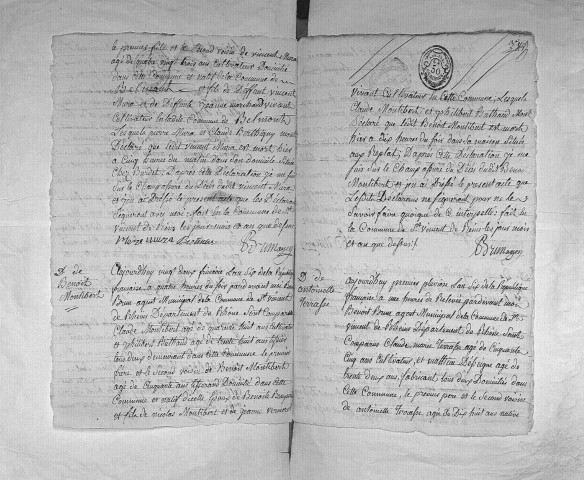 le premier fils et le second voisin de vincent Mura
agé de quatre vingt trois ans Cultivateur Domicilié
dans cette Commune et natif de la Commune de
Belmont et fils de Deffunt vincent
Mura et de Deffunte jeanne marchand vivant
Cultivateur de ladite Commune de Belmont
Lesquels pierre Mura et Claude Barthigny mont
Declaré que ledit vincent Mura est mort hier
a Cinq heures du matin dans son domicile
D'apres cette Declaration je me suis
sur le Champ assuré du deces dudit vincent Mura
et jen ai Dressé le present acte que les Declarans
requis avec moy. fait en la Commune de St
vincent de Rheins les jour mois et an que dessus
Brumagny
D. de
Benoit
Montibert
Aujourdhuy vingt deux frimaire Lan Six de la Republique
française a quatre heures du soir pardevant moi Benoit
Brun agent Municipal de la Commune de St vincent
de Rheins Departement de Rhône Sont Comparus
Claude Montibert agé de quarante huit ans Cultivateur
et philibert Bathand agé de trente huit ans
tous deux demeurant dans cette Commune le premier
frere et le second voisin de Benoit Montibert
agé de Cinquante ans Domicilié dans cette
Commune et natif dicelle Epoux de Benoite
et fils de nicolas Montibert et de jeanne
vivant Cultivateur de Cette Commune, Lesquels
Claude Montibert et philibert Bathand Mont
Declaré que ledit Benoit Montibert est mort
hier a dix heures du soir dans sa maison située
aux Replat; Dapres Cette Declaration je me
suis sur le Champ assuré du Deces dudit Benoit
Montibert et jen ai Dressé le present acte que
Lesdits Declarans ne signeront pour ne le
Savoir faire quoique de ce interpellés: fait en
la Commune de St vincent de Reins les jour mois
et an que dessus
Brumagny
D. de
antoinette
terrasse
aujourdhuy premier pluviose Lan Six de la Republique
française a une heure de Relevée pardevant moi
Benoit Brun agent Municipal de la Commune de St
vincent de Rheins Departement de Rhône Sont
Comparus Claude marie terrasse agé de Cinquante
Cinq ans Cultivateur, et mathieu agé de
trente deux ans, fabricant tous deux Domiciliés dans
Cette Commune, le premier pere et le Second voisin
de antoinette terrasse agée de Dix huit ans native